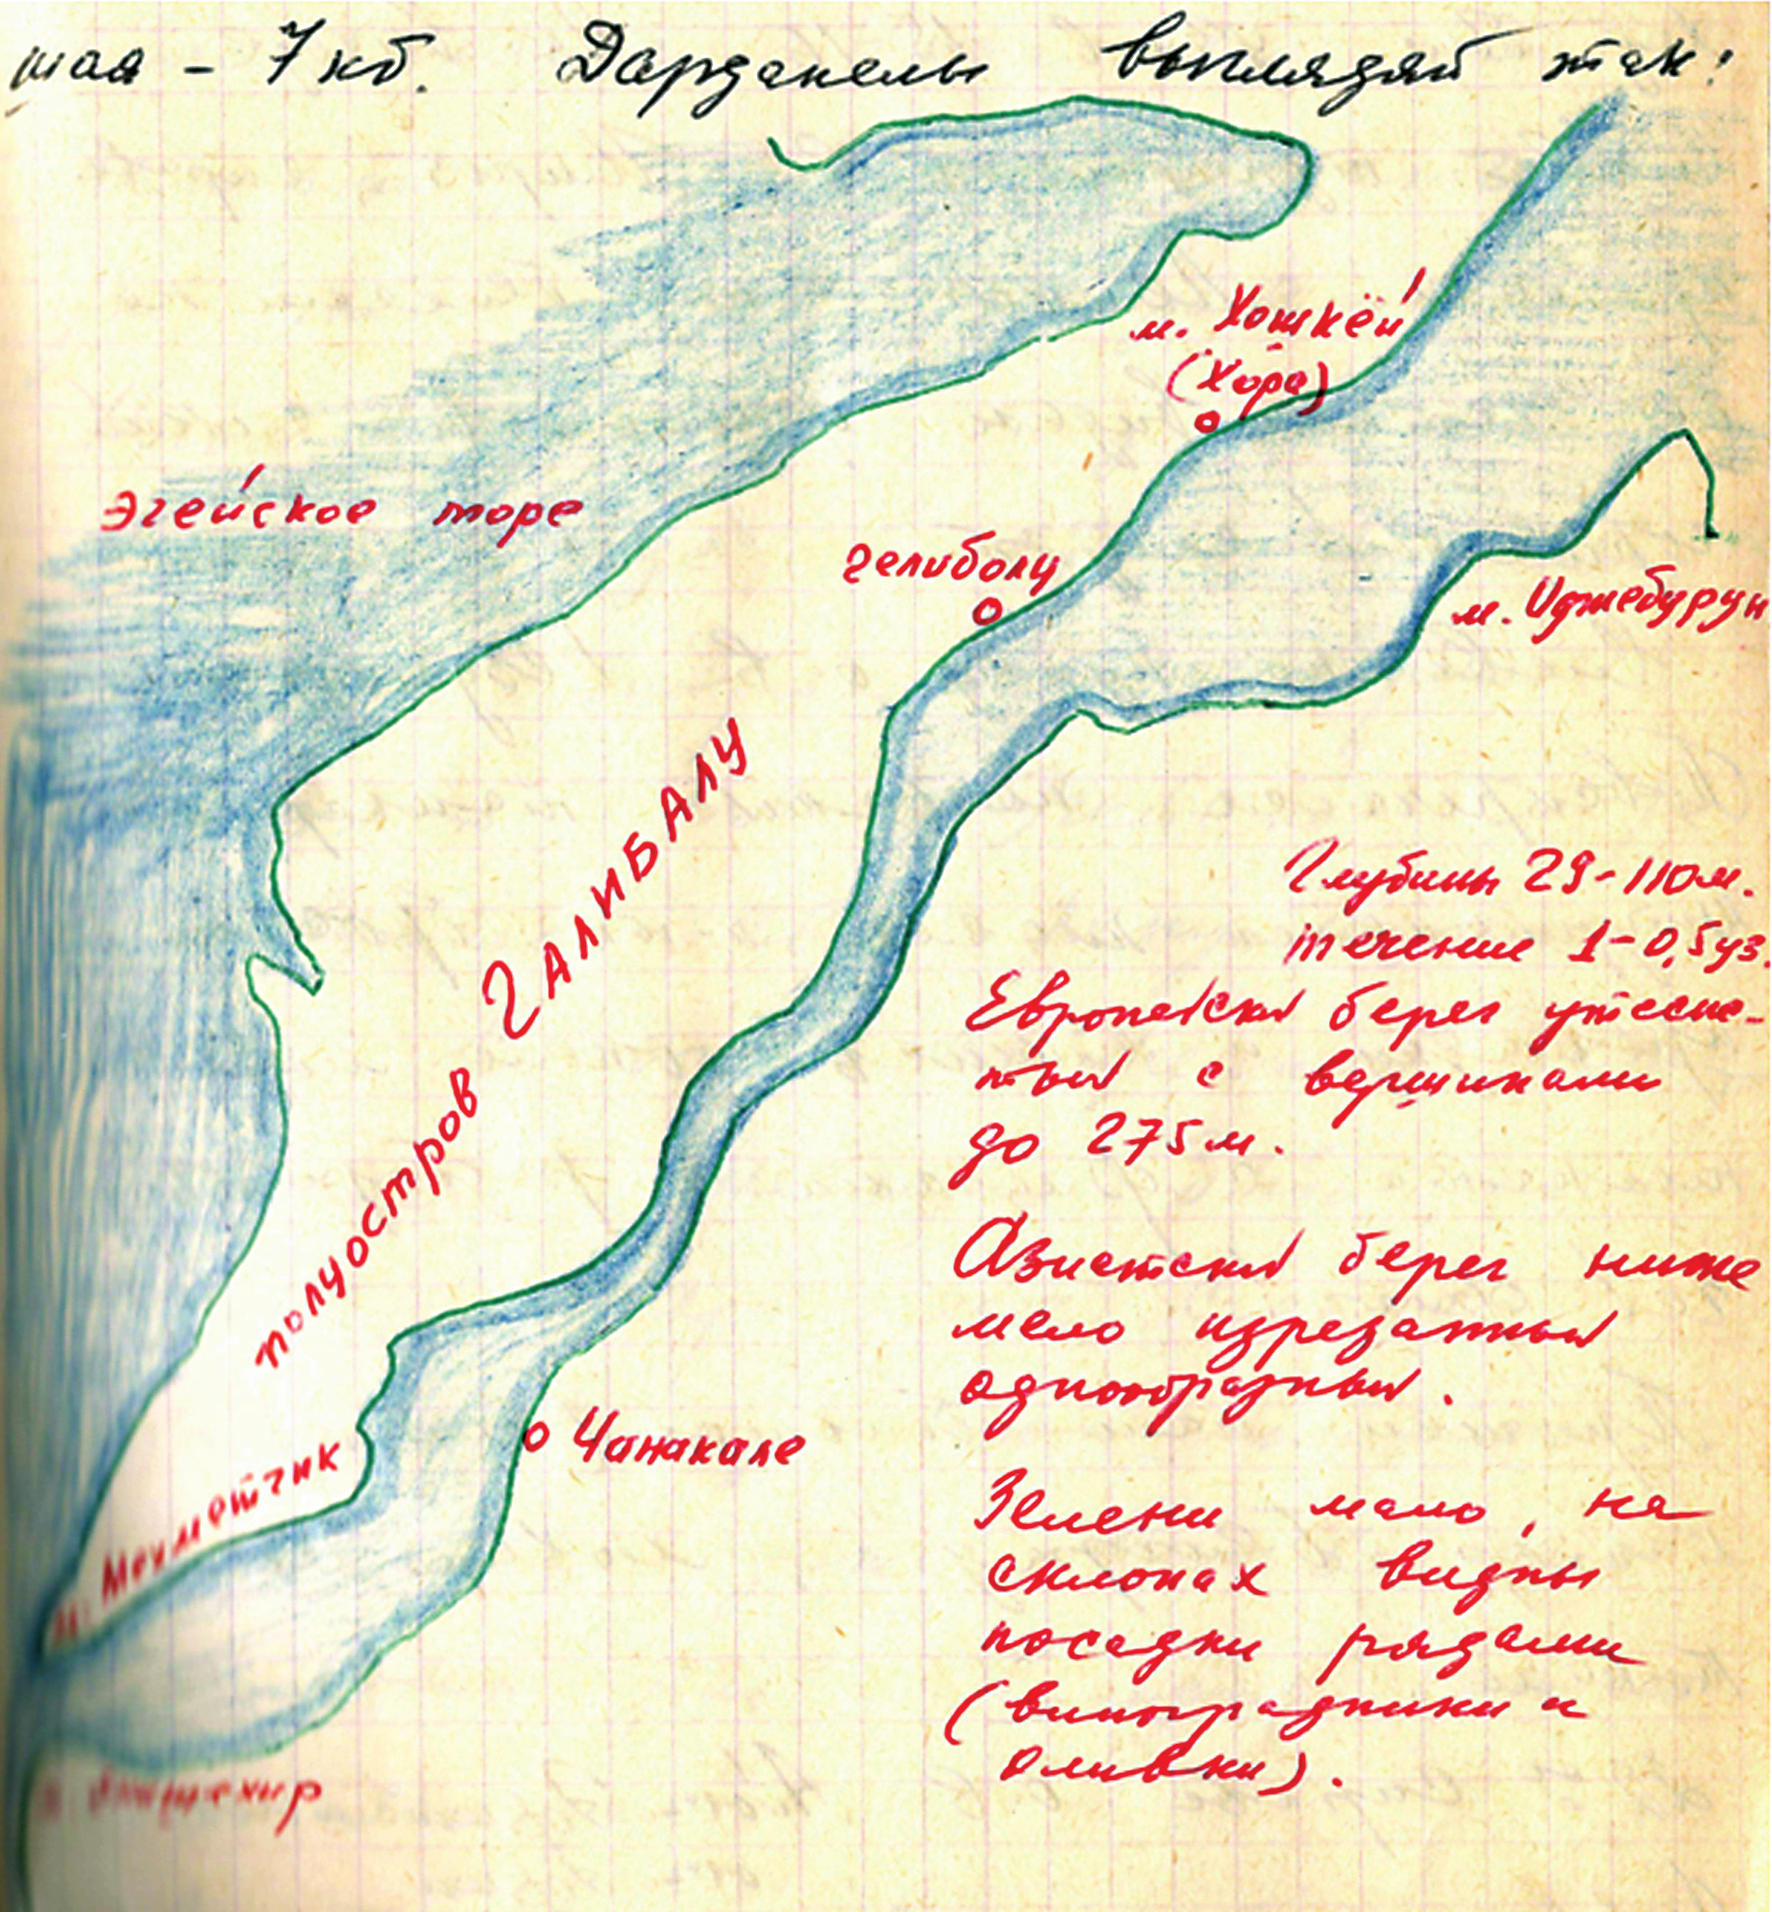 шая - 7 кб. Дарданелы выглядят так:
м. Хошкёй
(Хора)
Эгейское море
Гелиболу
м. Инджебурун
полуостров ГАЛИБАЛУ
Глубины 29-110м.
течение 1-0,5уз.
Европейский берег утесис-
тый с вершинами
до 275м.
Азиатский берег ниже
мало изрезанный
однообразный.
Чанаккале
м. Мехметчик
Зелени мало, на
склонах видны
посадки рядами
(виноградники и
оливки).